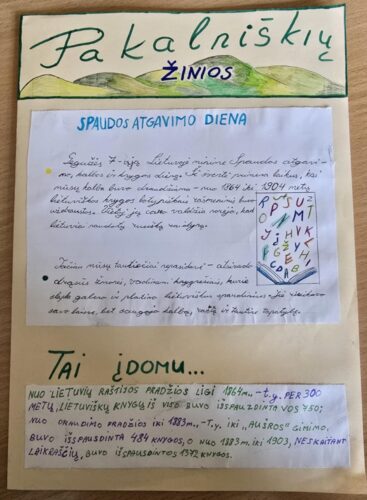 Pakalniškių
ŽINIOS
SPAUDOS ATGAVIMO DIENA
Gegužės 7-ąją Lietuvoje minime Spaudos atgavi-
mo, kalbos ir knygos dieną. Ši šventė primena laikus, kai
mūsų kalba buvo draudžiama - nuo 1864 iki 1904 metų
lietuviškos knygos lotyniškais rašmenimis buvo
uždraustos. Tuo metu carinė valdžia norėjo, kad
lietuviai naudotų rusišką raidyną.
Tačiau mūsų tautiečiai nepasidavė - atsirado
drąsių žmonių, vadinami knygnešiais, kurie
slapta gabeno ir platino lietuvišką spaudą. Jie rizikavo
savo laisve, bet saugojo kalbą, raštą ir tautos tapatybę.
TAI ĮDOMU...
NUO LIETUVIŲ RAŠTIJOS PRADŽIOS LIGI 1864M., - t.y. PER 300
METŲ, LIETUVIŠKŲ KNYGŲ IŠ VISO BUVO IŠSPAUZDINTA VOS 750;
NUO DRAUDIMO PRADŽIOS IKI 1883M., - T.Y. IKI „AUŠROS" GIMIMO,
BUVO IŠSPAUSDINTA 484 KNYGOS, O NUO 1883M. IKI 1903, NESKAITANT
LAIKRAŠČIŲ, BUVO IŠSPAUSDINTOS 1372 KNYGOS.